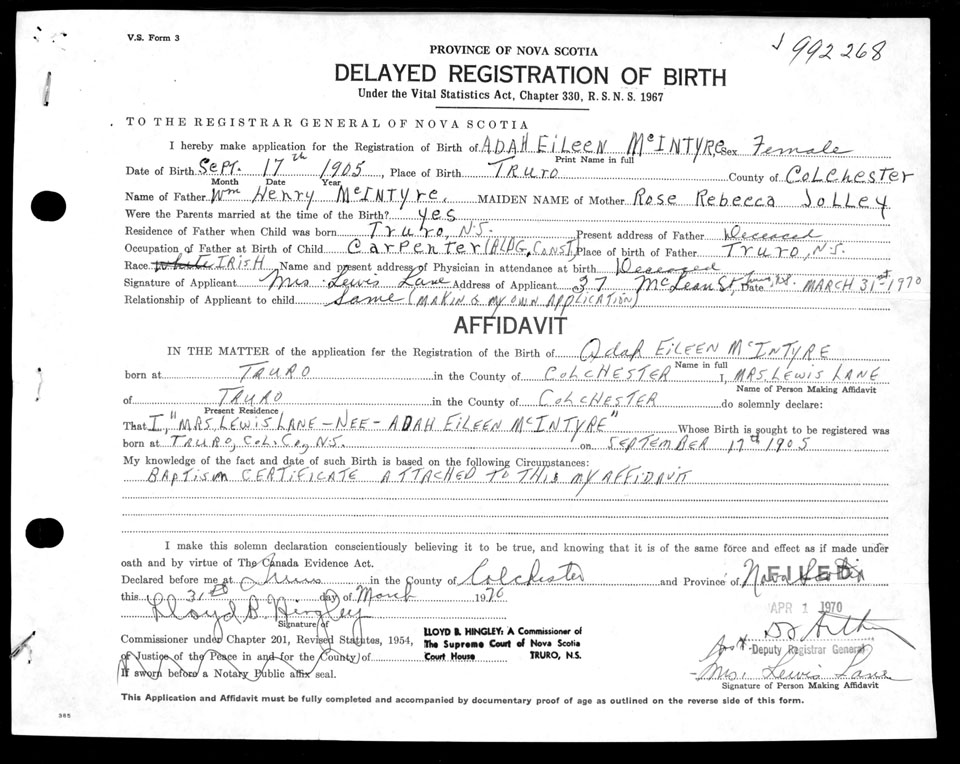 V.S. Form 3
992268
PROVINCE OF NOVA SCOTIA
DELAYED REGISTRATION OF BIRTH
Under the Vital Statistics Act, Chapter 330, R.S.N.S. 1967
TO THE REGISTRAR GENERAL OF NOVA SCOTIA
I hereby make application for the Registration of Birth of ADAH EILEEN McINTYRE Sex Female
Print Name in full
Date of Birth SEPT. 17th 1905, Place of Birth TRURO County of COLCHESTER
Month Date Year
Name of Father Wm Henry McINTYRE. MAIDEN NAME of Mother Rose Rebecca JOLLEY
Were the Parents married at the time of the Birth? yes
Residence of Father when Child was born TRURO, N.S. Present address of Father Deceased
Occupation of Father at Birth of Child Carpenter (BLDG. CONST) Place of birth of Father TRURO, N.S.
Race White IRISH Name and present address of Physician in attendance at birth Deceased
Signature of Applicant Mrs. Lewis Lane Address of Applicant 37 McLean St, Truro, N.S. Date MARCH 31st 1970
Relationship of Applicant to child Same (MAKING MY OWN APPLICATION)
AFFIDAVIT
IN THE MATTER of the application for the Registration of the Birth of Adah EILEEN McINTYRE
Name in full
born at TRURO in the County of COLCHESTER I, MRS. LEWIS LANE
Name of Person Making Affidavit
of TRURO in the County of COLCHESTER do solemnly declare:
Present Residence
That I, "MRS. LEWIS LANE - NEE - ADAH EILEEN McINTYRE" Whose Birth is sought to be registered was
born at TRURO, COL. CO., N.S. on SEPTEMBER 17th 1905
My knowledge of the fact and date of such Birth is based on the following Circumstances:
BAPTISM CERTIFICATE ATTACHED TO THIS MY AFFIDAVIT
I make this solemn declaration conscientiously believing it to be true, and knowing that it is of the same force and effect as if made under
oath and by virtue of The Canada Evidence Act.
Declared before me at Truro in the County of Colchester and Province of Nova Scotia
FILED
this 31st day of March 1970
APR 1 1970
Lloyd B Hingley
Signature of
Commissioner under Chapter 201, Revised Statutes, 1954,
of Justice of the Peace in and for the County of
If sworn before a Notary Public affix seal.
LLOYD B. HINGLEY: A Commissioner of
The Supreme Court of Nova Scotia
Court House TRURO, N.S.
Deputy Registrar General
Mrs. Lewis Lane
Signature of Person Making Affidavit
This Application and Affidavit must be fully completed and accompanied by documentary proof of age as outlined on the reverse side of this form.
365